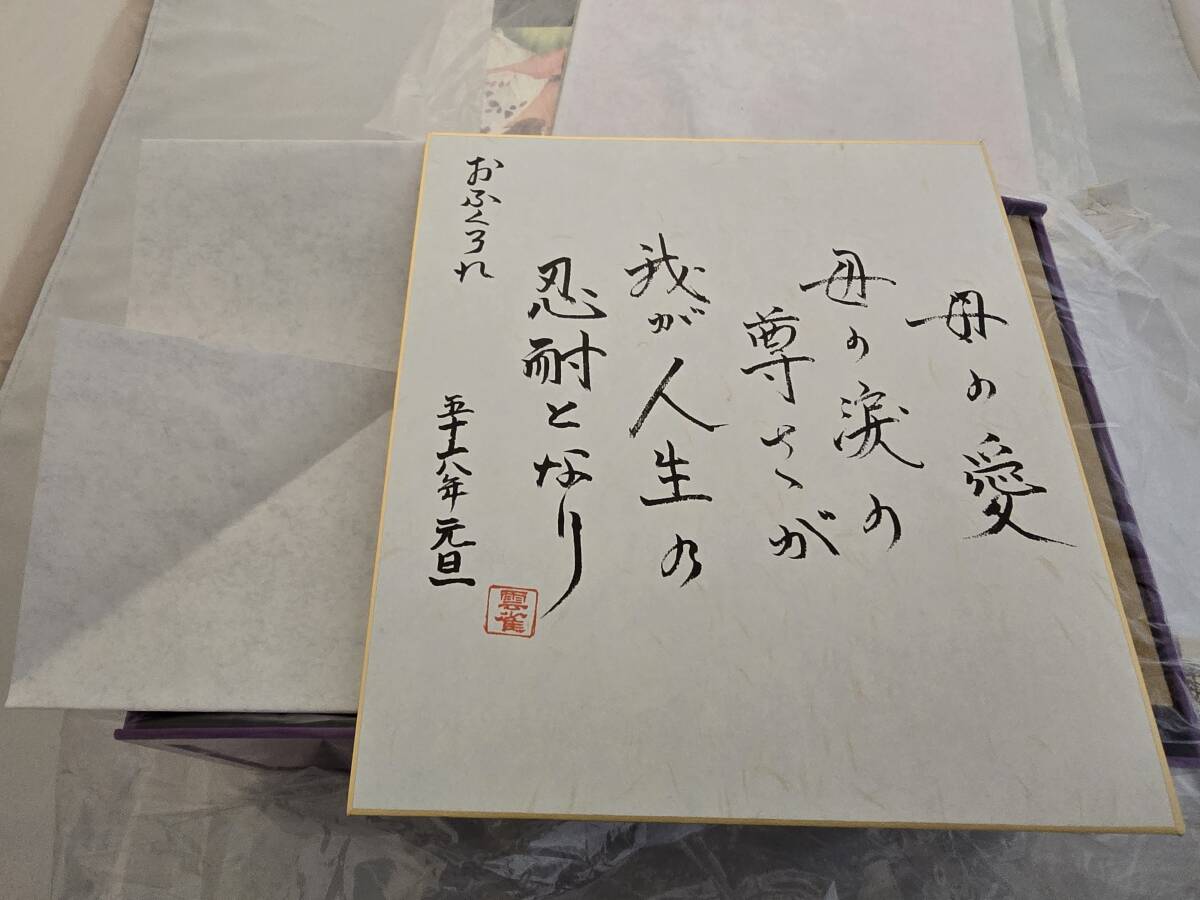 母の愛
母の涙の
尊さが
我が人生の
忍耐となり
おふくろれ
五十六年 元旦
雲雀